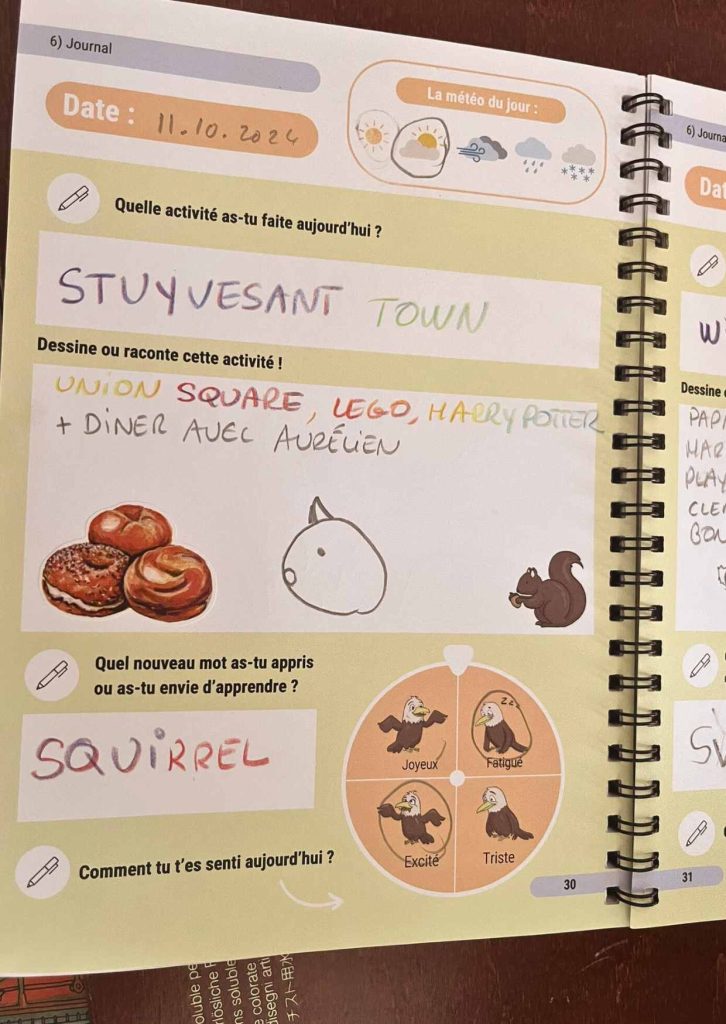 6) Journal
Date : 11.10.2024
La météo du jour :
Quelle activité as-tu faite aujourd'hui ?
STUYVESANT TOWN
Dessine ou raconte cette activité !
UNION SQUARE, LEGO, HARRY POTTER
+ DINER AVEC AURÉLIEN
Quel nouveau mot as-tu appris
ou as-tu envie d'apprendre ?
SQUIRREL
zzz
Joyeux
Fatigué
Excité
Triste
Comment tu t'es senti aujourd'hui ?
30
6) Journa
Dat
W
Dessine
PAPI
HAR
PLAY
CLE
BON
31